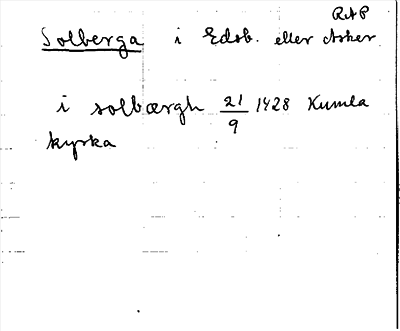 RAP
Solberga i Edsb. eller Asker
i solbærgh 21/9 1428 Kumla
kyrka